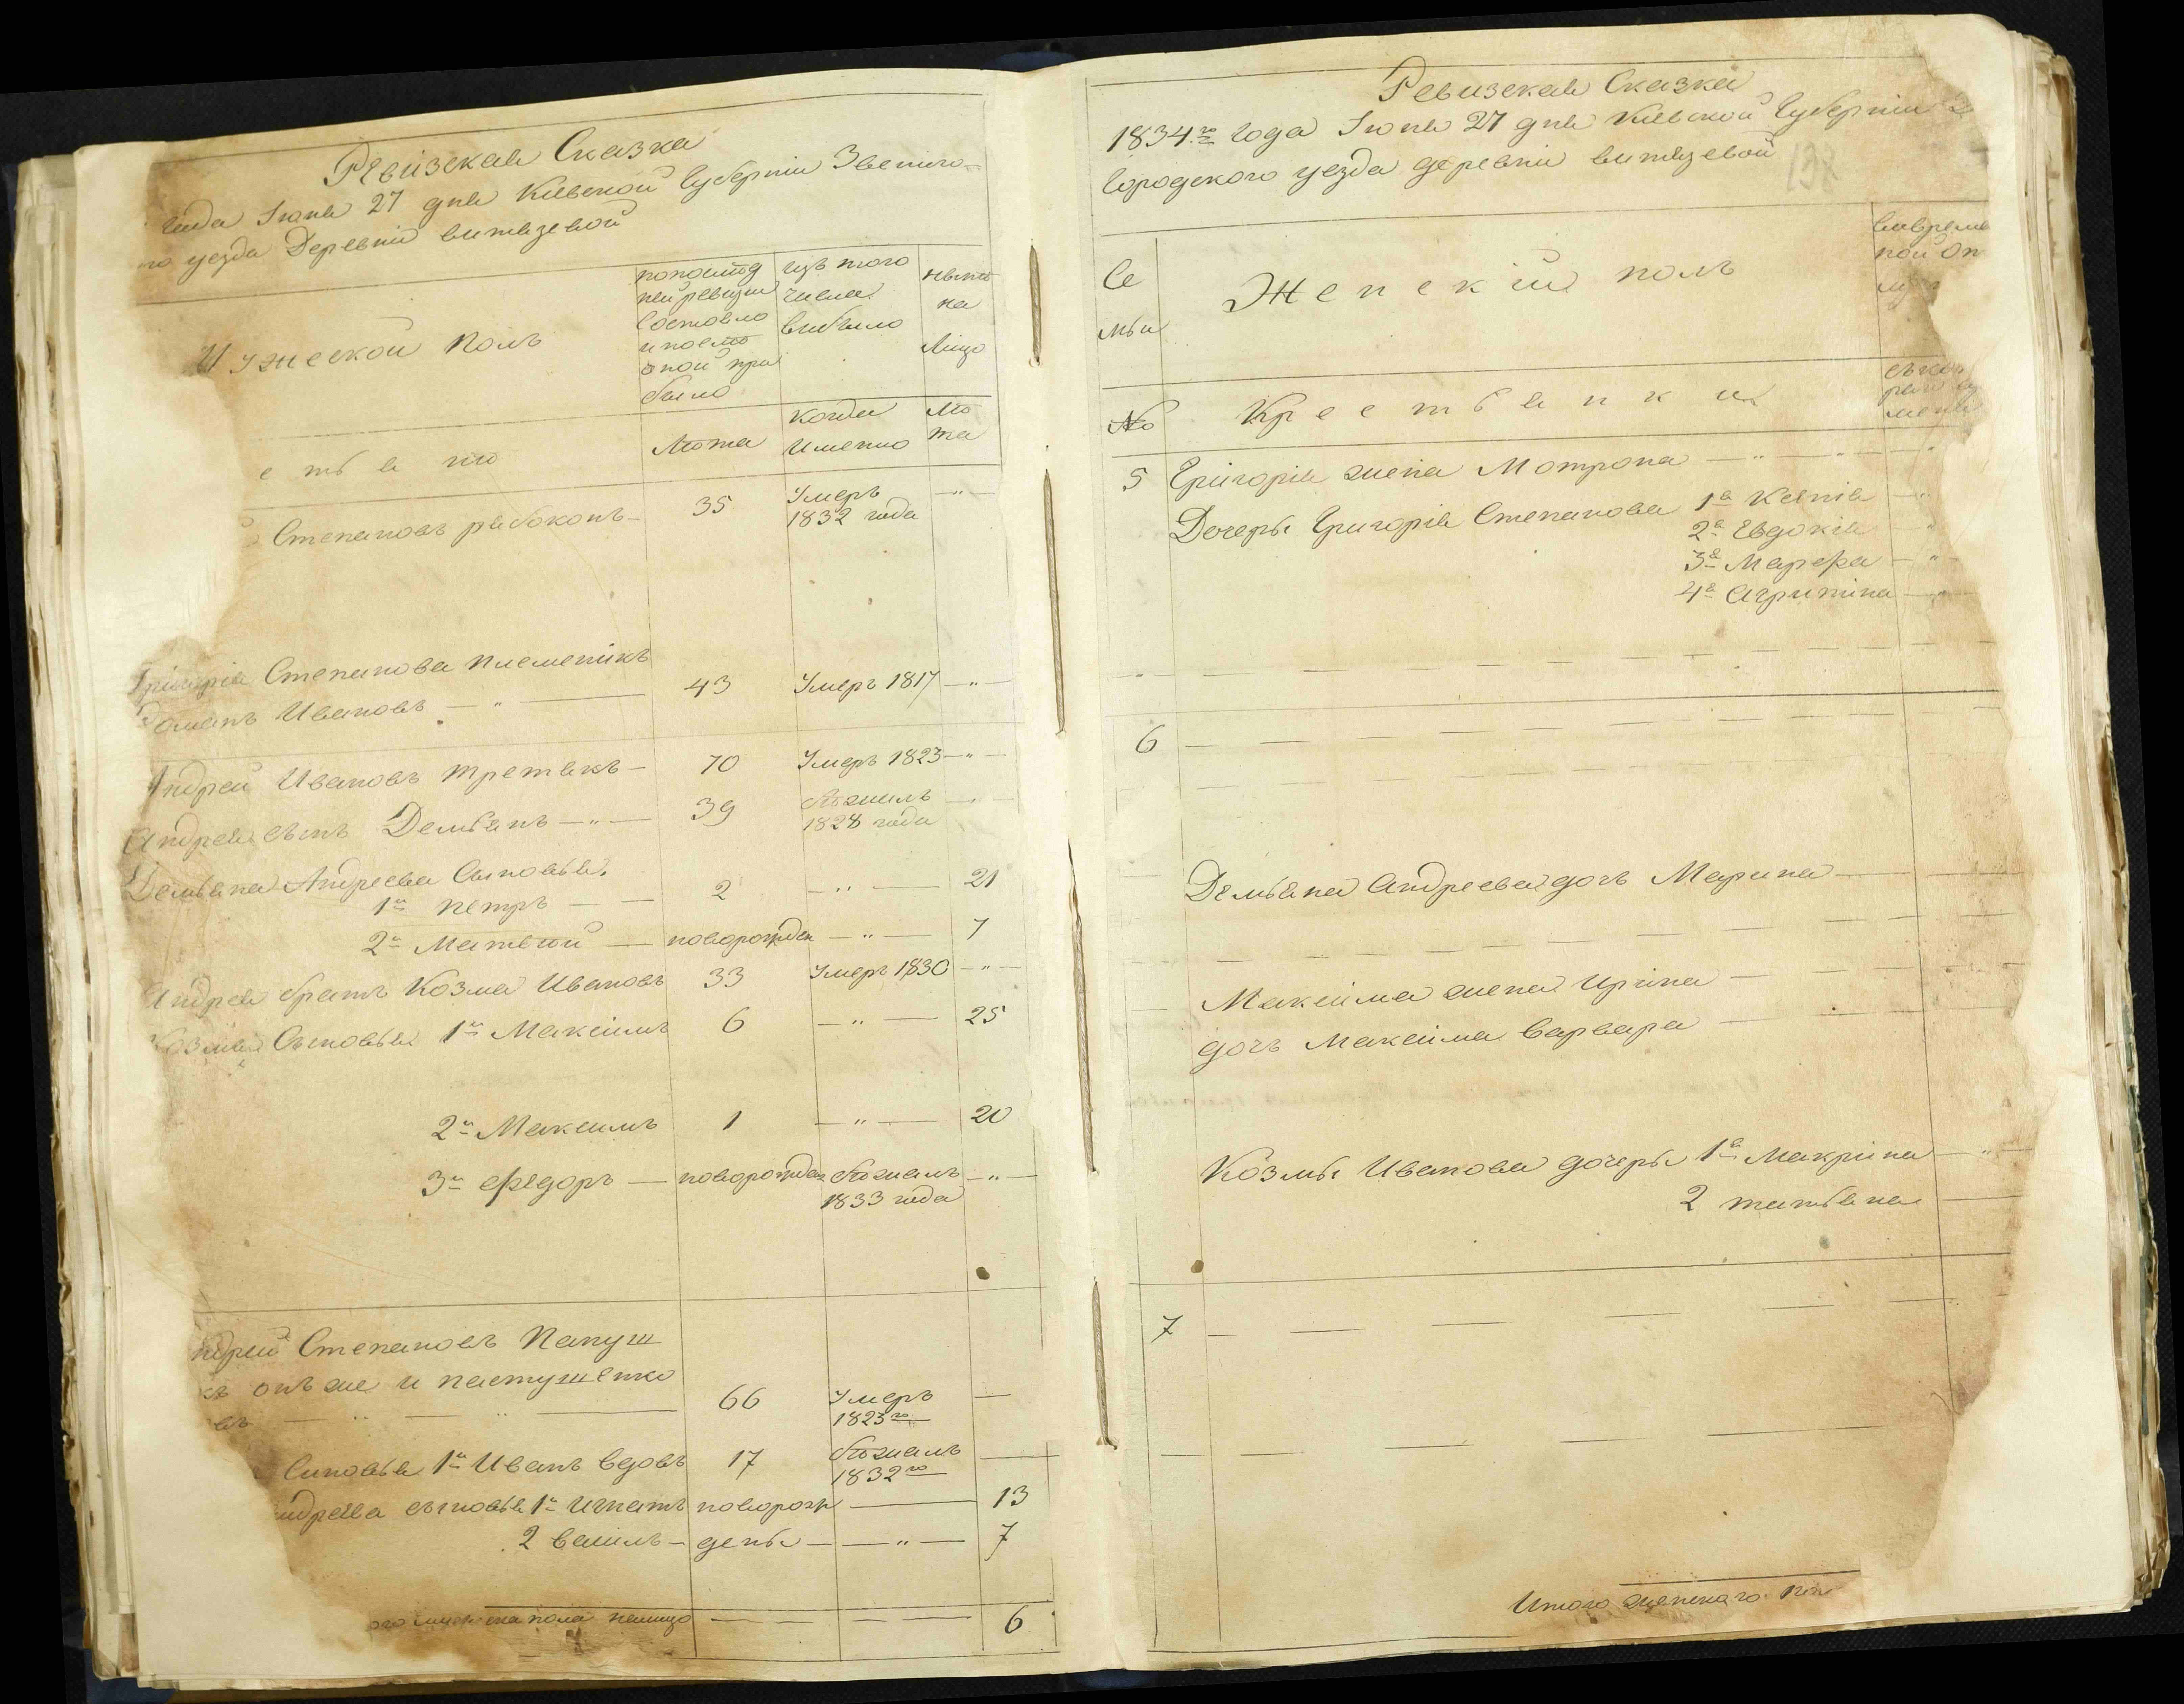 Ревизская Сказка
года Іюня 27 дня Киевской Губерніи Звениго-
го уезда Деревни витязевой
Мужеской полъ
попослед
ней ревизіи
состояло
и после
оной при
было
изъ того
числа
выбыло
ныне
на
лицо
Лета
когда
именно
Ле
та
Степановъ рябоконъ — 35 Умеръ — " —
1832 года
Григорія Степанова племенікъ
Романъ Ивановъ — " — 43 Умеръ 1817 — " —
Андрей Ивановъ третякъ — 70 Умеръ 1823 — " —
Андрея сынъ Демьянъ — " — 39 бежалъ — " —
1828 года
Демьяна Андреева Сыновья,
1й петръ — — 2 — " — 21
2й Матвей — поворожден — " — 7
Андрея братъ Козма Ивановъ 33 Умеръ 1830 — " —
Козмы Сыновья 1й Максимъ 6 — " — 25
2й Максимъ 1 — " — 20
3й Федоръ — новорожден бежалъ — " —
1833 года
ндрей Степановъ Папуш
къ онъ же и пастушенко
въ — " — " — 66 Умеръ —
1823го
Сыновья 1й Иванъ вдовъ 17 бежалъ —
1832го
ндреева сыновья 1й Игнатъ новорож — 13
2 василь — дены — — " — 7
пола налицо — — — — 6
Ревизская Сказка
1834го года Іюня 27 дня Киевской Губерніи
городского уезда деревни витязевой
138
Се
мьи
Женский полъ
№ Крестьянки
5 Григорія жена Мотрона — " — " —
Дочеры Григорія Степанова 1я Ксенія — "
2я Евдокія "
3я Марфа — " —
4я Агрипина — " —
6 — — — — — —
Демьяна Андреева дочъ Марина —
Максима жена Ирина —
дочъ Максима Варвара —
Козмы Иванова дочеры 1я Макрина — " —
2 татьяна —
7 — — — — —
Итого женскаго